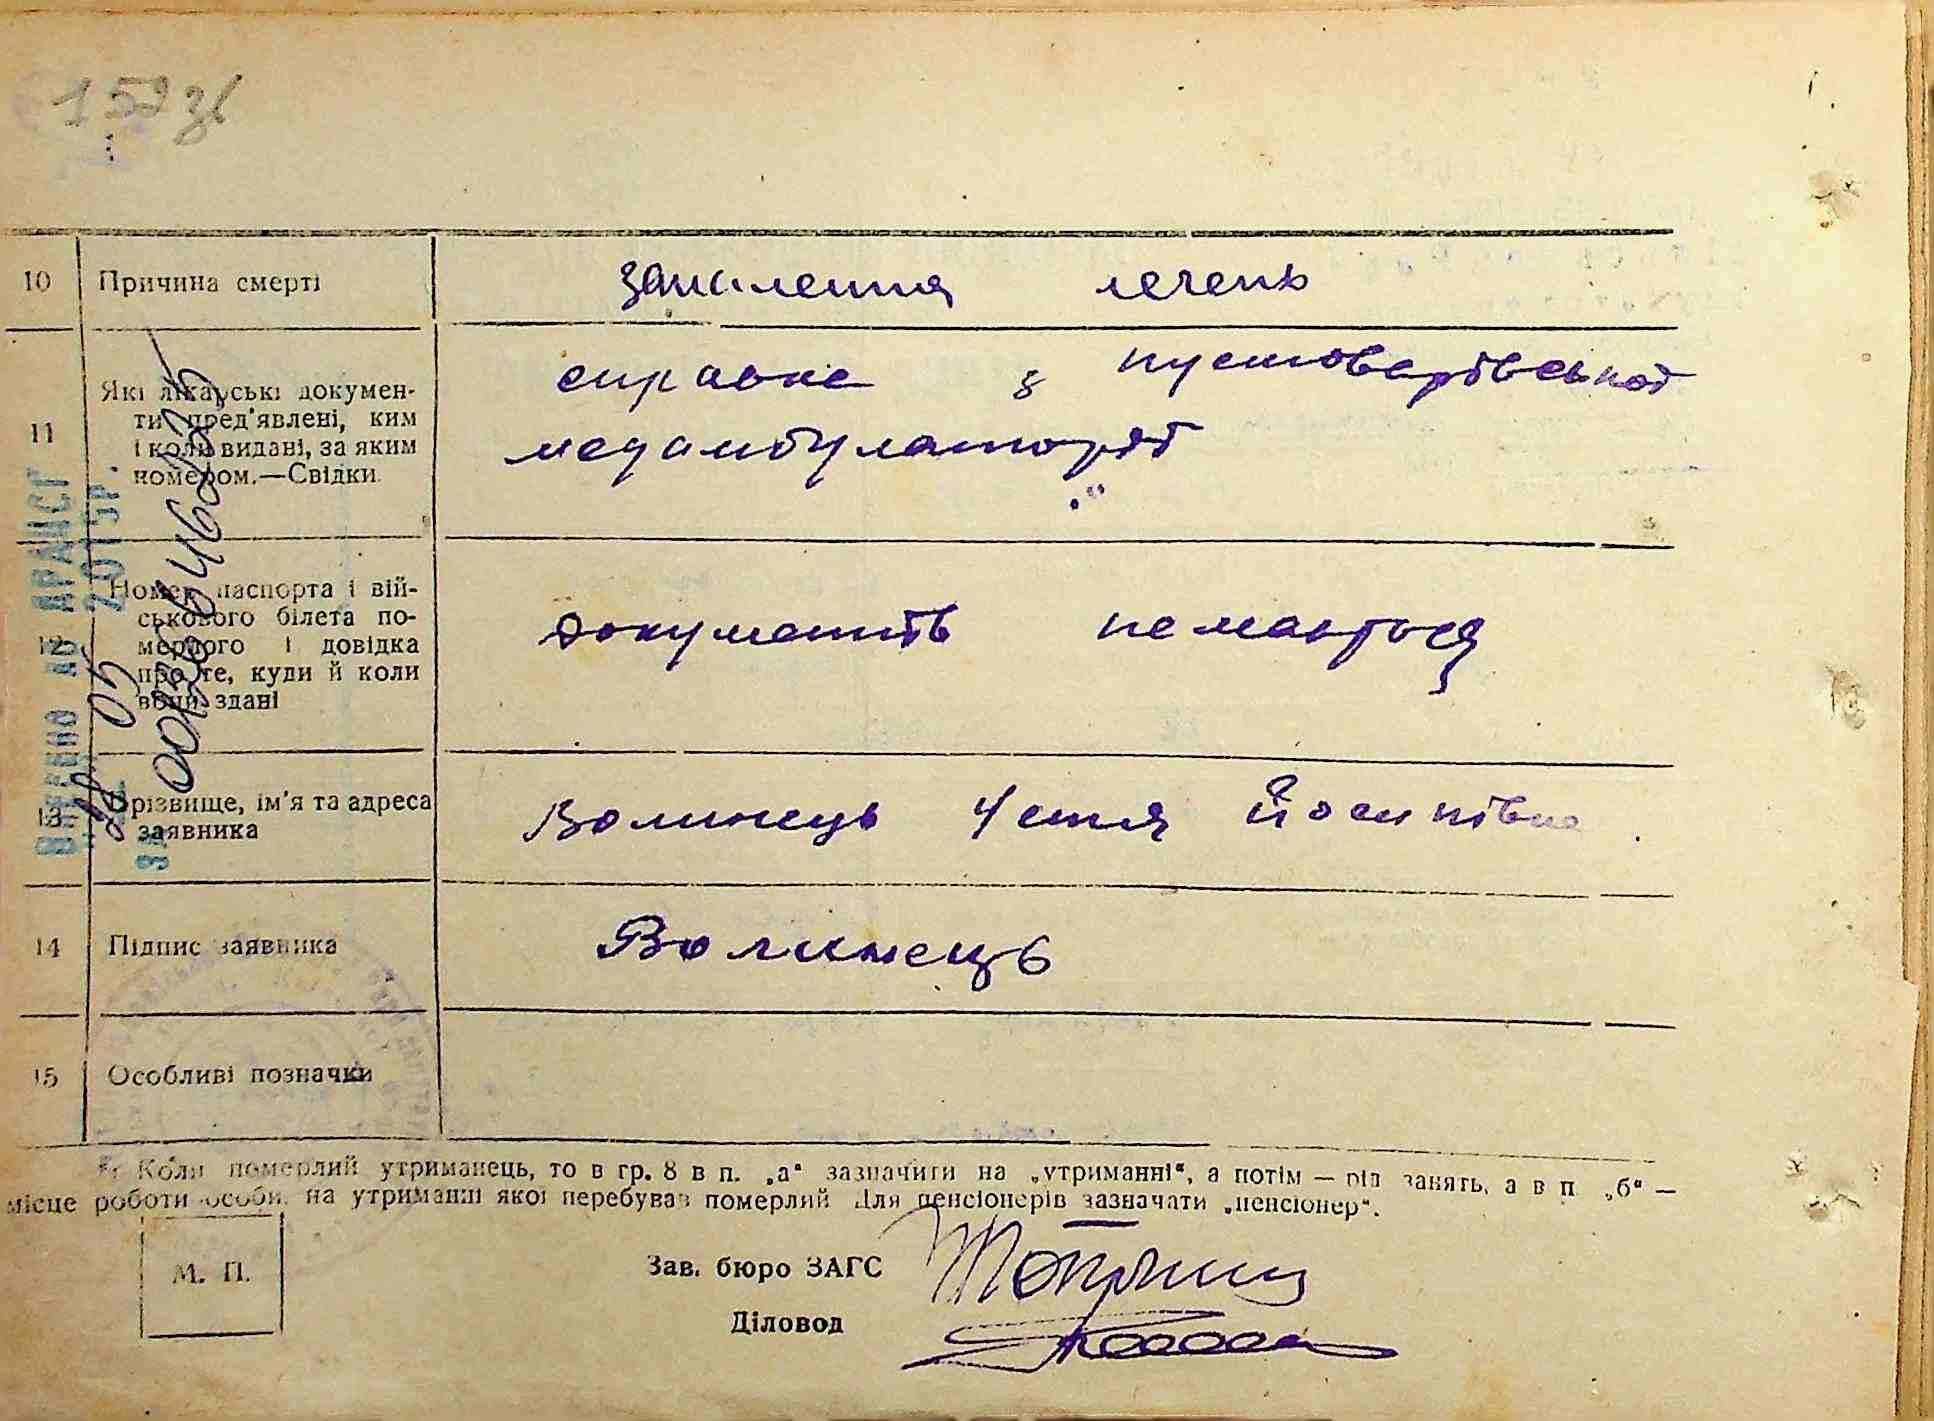 152 зв
10 Причина смерті запалення легень
11 Які лікарські докумен-
ти пред'явлені, ким
і коли видані, за яким
номером.—Свідки.
справка з пустоварівської
медамбулаторії
12 Номер паспорта і вій-
ськового білета по-
мерлого і довідка
про те, куди й коли
вони здані
документів немається
13 Прізвище, ім'я та адреса
заявника
Волинець Устя Йосипівна
14 Підпис заявника Волинець
15 Особливі позначки
ВІДДІЛ
2015р.
ЗА
*) Коли померлий утриманець, то в гр. 8 в п. „а“ зазначити на „утриманні“, а потім — рід занять, а в п. „б“ —
місце роботи особи, на утриманні якої перебував померлий. Для пенсіонерів зазначати „пенсіонер“.
М. П.
Зав. бюро ЗАГС
Діловод